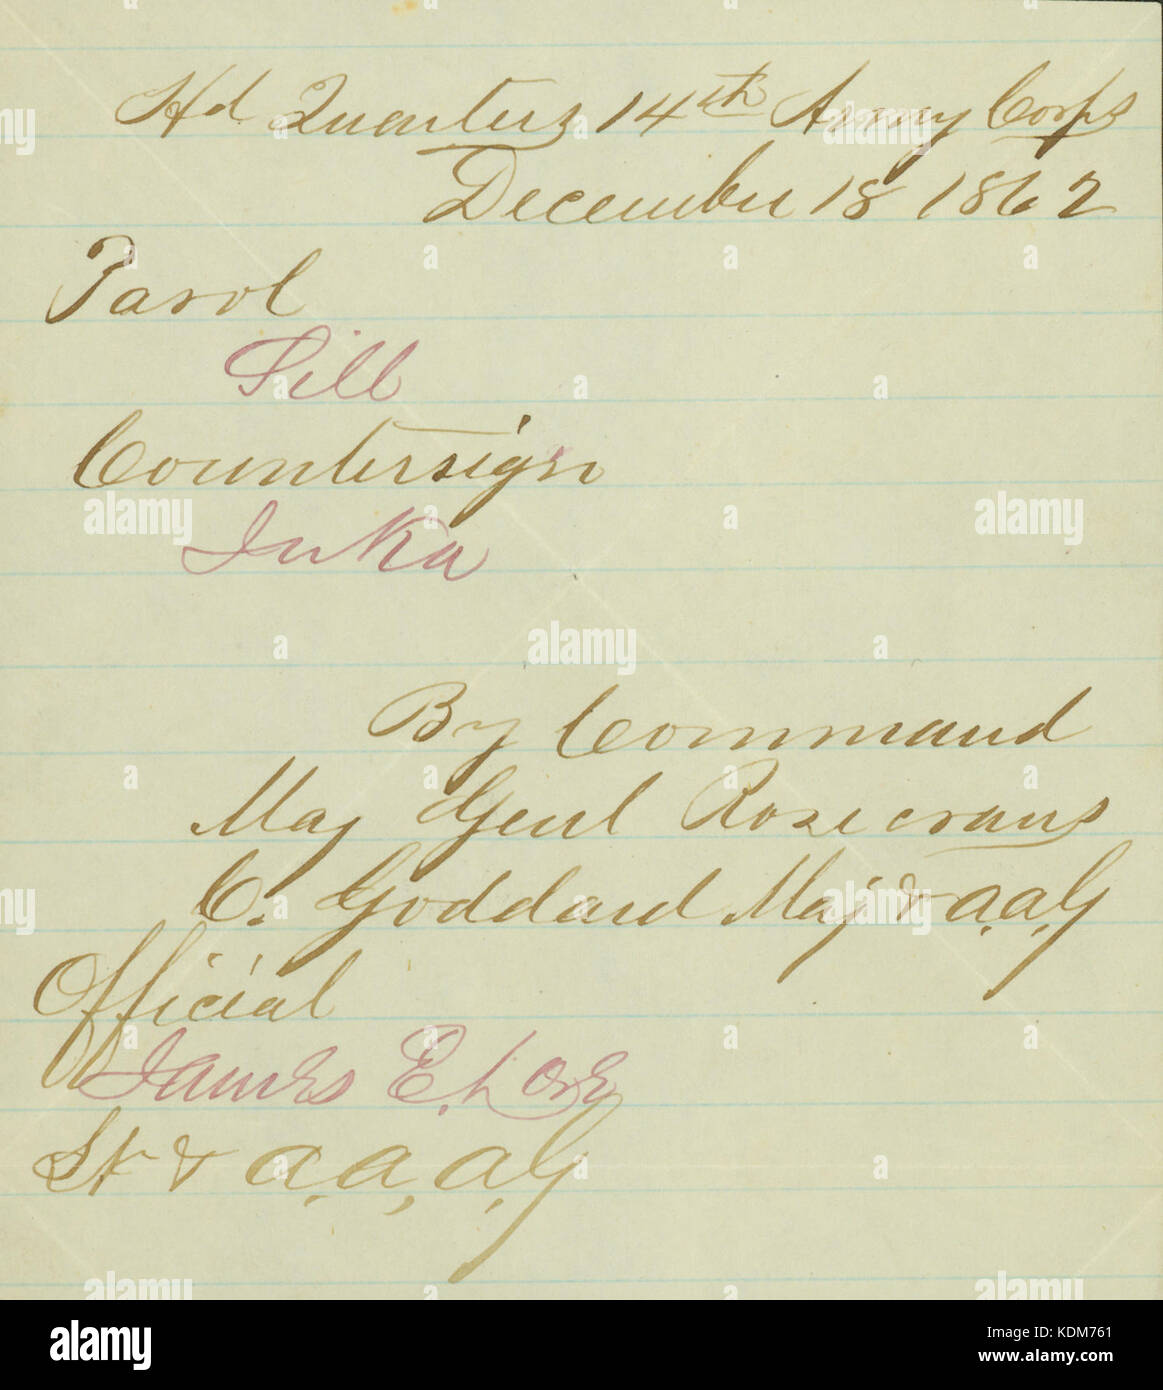 Hd Quarters 14th Army Corps
December 18 1862
Parol
Sill
Countersign
Iuka
By Command
Maj Genl Rosecrans
C. Goddard Maj & a.a.G
Official
James E. Love
Lt & a.a,a.G
alamy
Image ID: KDM761
www.alamy.com